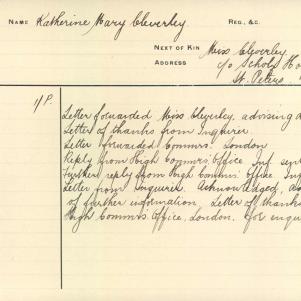 NAME Katherine Mary Cleverley. REG, &C.
NEXT OF KIN Miss Cleverley,
ADDRESS c/o Schols Ho
St. Peters.
1/P. Letter forwarded Miss Cleverley, advising
Letter of thanks from Inquirer
Letter forwarded Commrs. London
Reply from High Commrs. Office Inf. sent
Further reply from High Comms. Office Inf
Letter from Inquirer. Acknowledged,
of further information, Letter of thanks
High Commrs. Office, London. for enqui